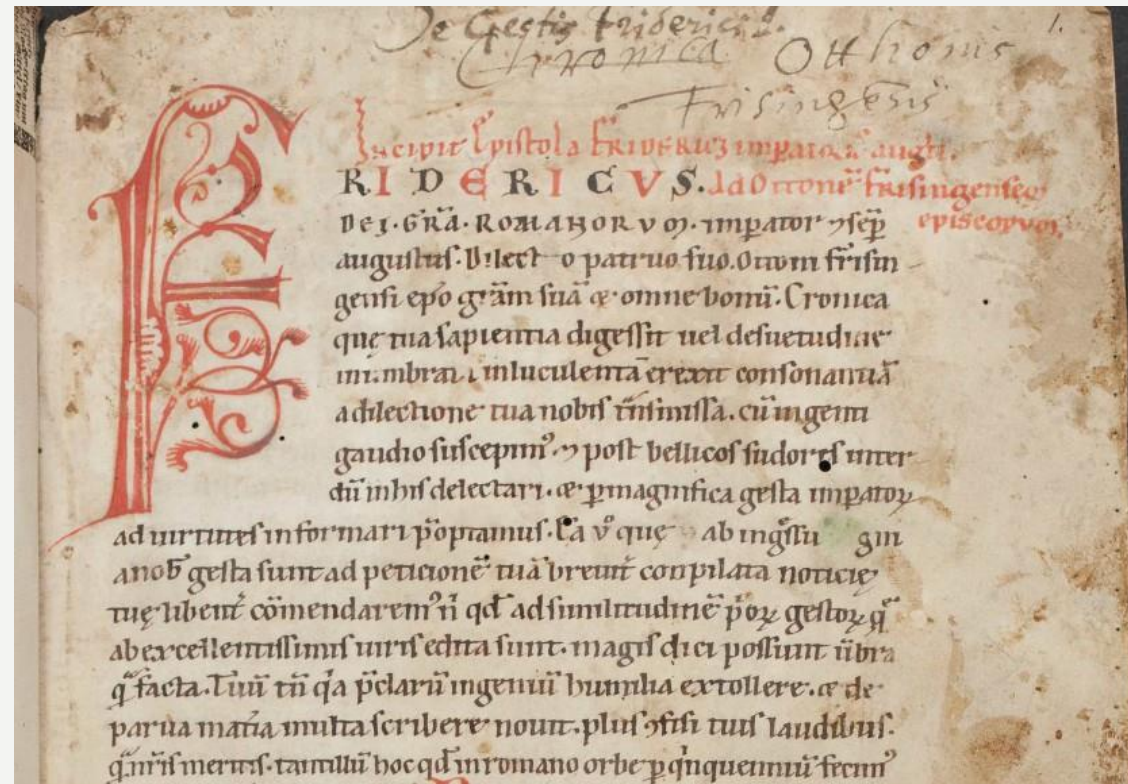 De Gestis Friderici I.
1.
Chronica Otthonis
Frisingensis
Incipit Epistola FRIDERICI imperatoris augti.
FRIDERICVS. Ad Ottonē frisingensē
episcopvm.
DEI. GRĀ. ROMANORVM. imperator ⁊ sēp
augustus. Dilecto patruo suo. Ottoni frisin
gensi ep̄o grām suā & omne bonū. Cronica
quę tua sapientia digessit uel desuetudine
inumbrata inluculentā erexit consonantiā
a dilectione tua nobis trāsmissa. cū ingenti
gaudio suscepim᷒. ⁊ post bellicos sudores inter
dū in his delectari. & p̱magnifica gesta imperatoꝝ
ad uirtutes informari p̄optamus. Ea v̊ quę ab ing̊ssu gni
a nob̄ gesta sunt ad peticionē tuā breuit̄ conpilata noticię
tuę libent̄ cōmendarem᷒ n̄ qd̄ ad similitudinē p̓oꝝ gestoꝝ q̄
ab excellentissimis uiris edita sunt. magis dici possunt ūbra
q̄ facta. Tuū tn̄ q̓a p̄clarū ingeniū humilia extollere. & de
parua mat̄ia multa scribere nouit. plus ꝯfisi tuis laudibus.
q̄ nr̄is meritis. tantillū hoc qd̄ in romano orbe p̱ q̓nquenniū fecim᷒